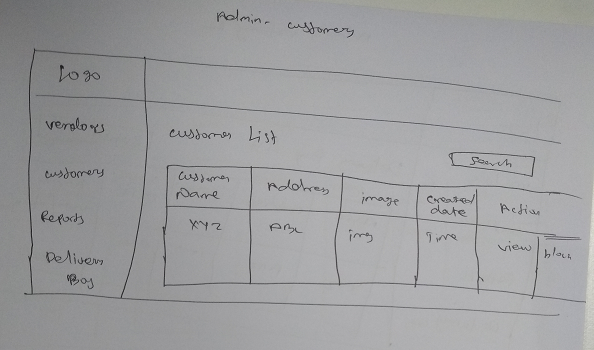 Admin. customers
Logo
Vendors
customers
Reports
Delivery
Boy
customer List
Search
customer
Name
Address
image
created
date
Action
XYZ
ABC
img
time
view
block